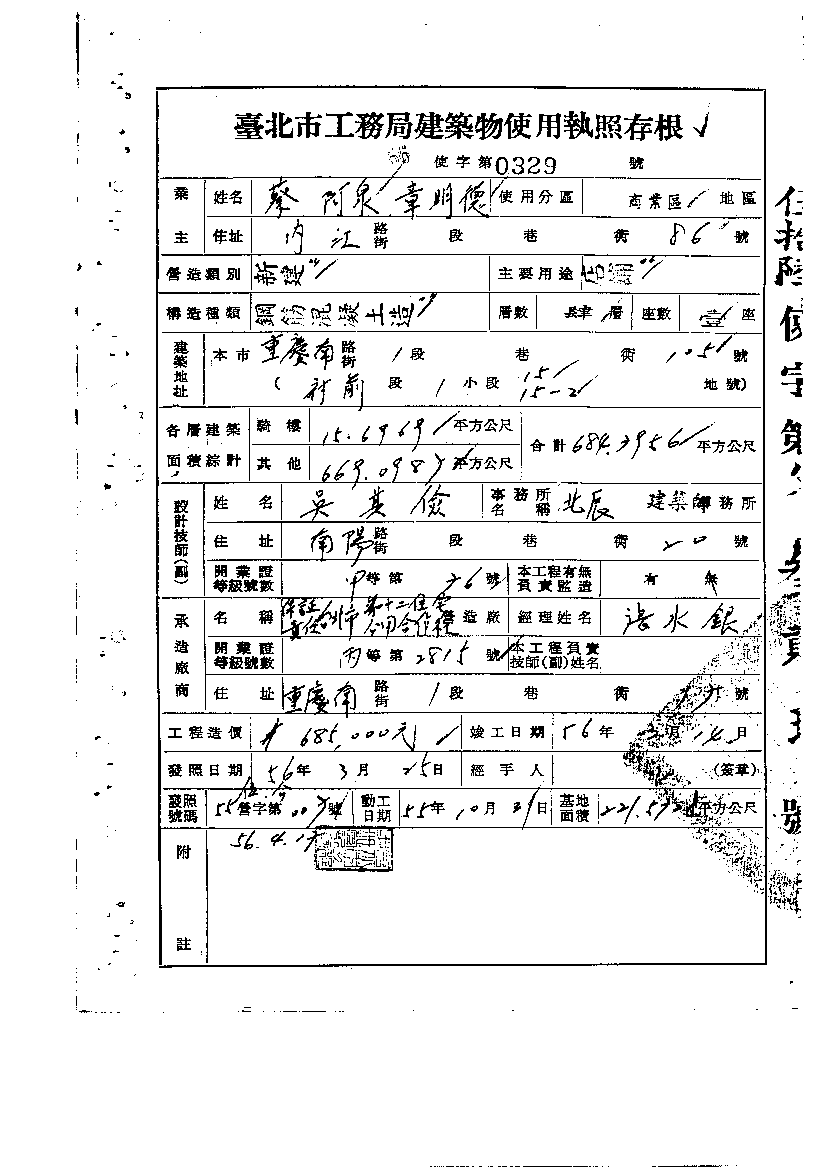 臺北市工務局建築物使用執照存根
使字第0329號
業主 姓名 蔡阿泉 章明德 使用分區 商業區 地區
住址 內江 路街 段 巷 街 86 號
營造類別 新建 主要用途 店舖
構造種類 鋼筋混凝土造 層數 肆層 座數 壹座
建築地址 本市 重慶南 路街 1段 巷 街 105 號
段 1 小段 15 15-2 地號)
各層建築面積綜計 騎樓 15.6969 平方公尺 合計 684.3956 平方公尺
其他 669.0987 平方公尺
設計技師(副) 姓名 吳其儉 事務所名稱 北辰 建築師事務所
住址 南陽 路街 段 巷 街 20 號
開業證等級號數 甲等第 26 號 本工程有無負責監造 有 無
承造廠商 名稱 保証責任 台北市第十二住宅公用合作社 營造廠 經理姓名 水銀
開業證等級號數 丙等第 2815 號 本工程負責技師(副)姓名
住址 重慶南 路街 1段 巷 街 號
工程造價 685,000元 竣工日期 56年 月 14日
發照日期 56年 3月 25日 經手人 (簽章)
發照號碼 55營字第 號 動工日期 55年 10月 31日 基地面積 平方公尺
56.4.17
附註
伍拾陸使字第 號